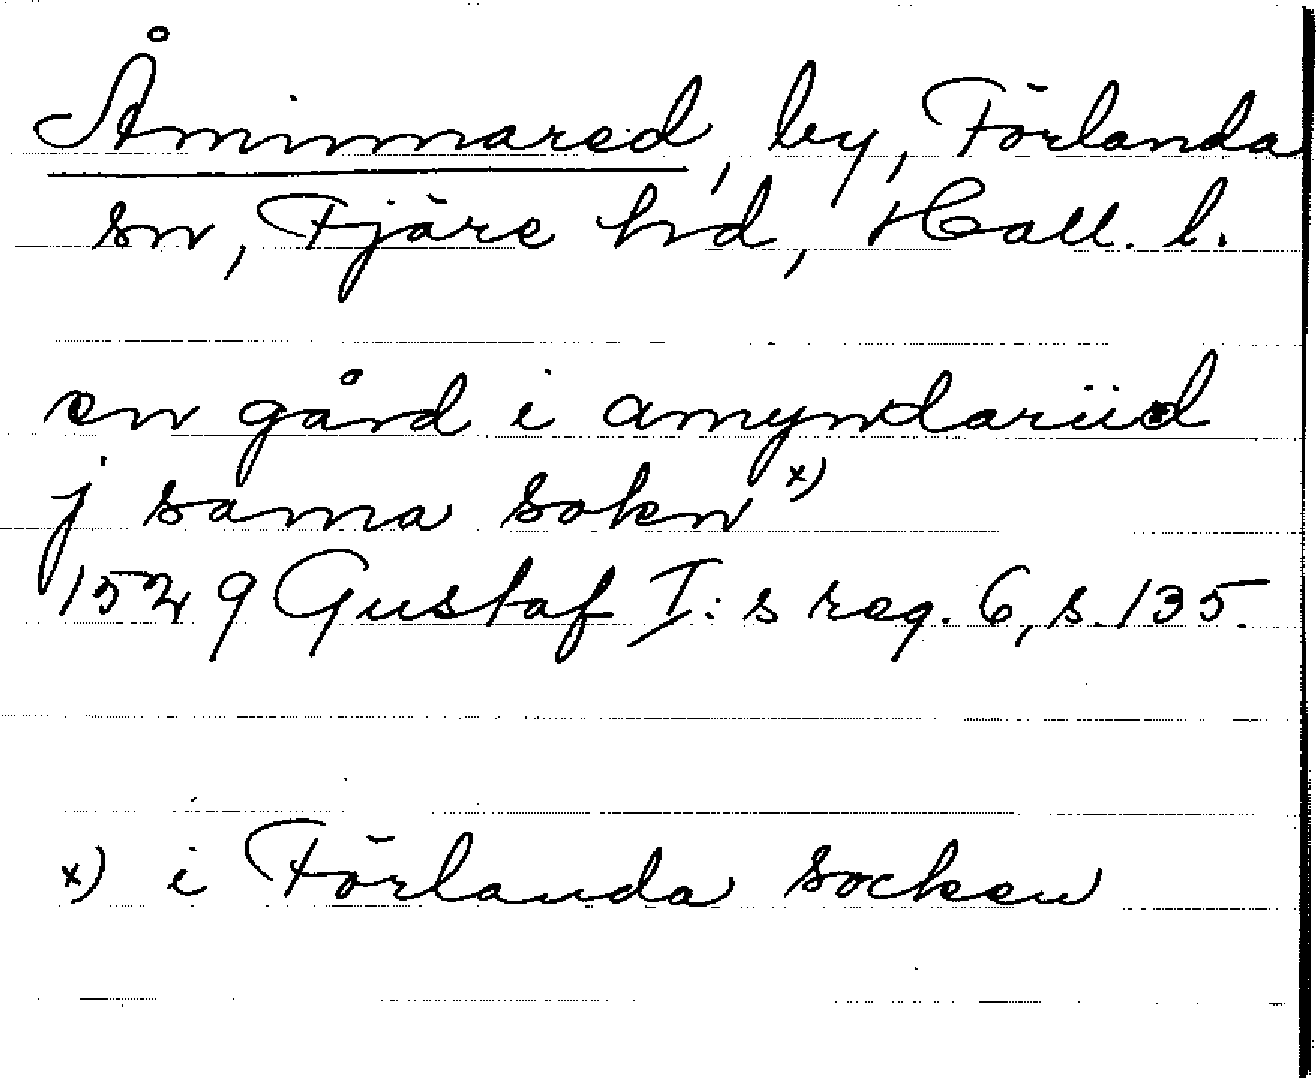 Åminnared, by, Förlanda
sn, Fjäre hd, Hall. l.
en gård i amyndariid
j sama sokn x)
1529 Gustaf I:s reg. 6, s. 135.
x) i Förlanda socken